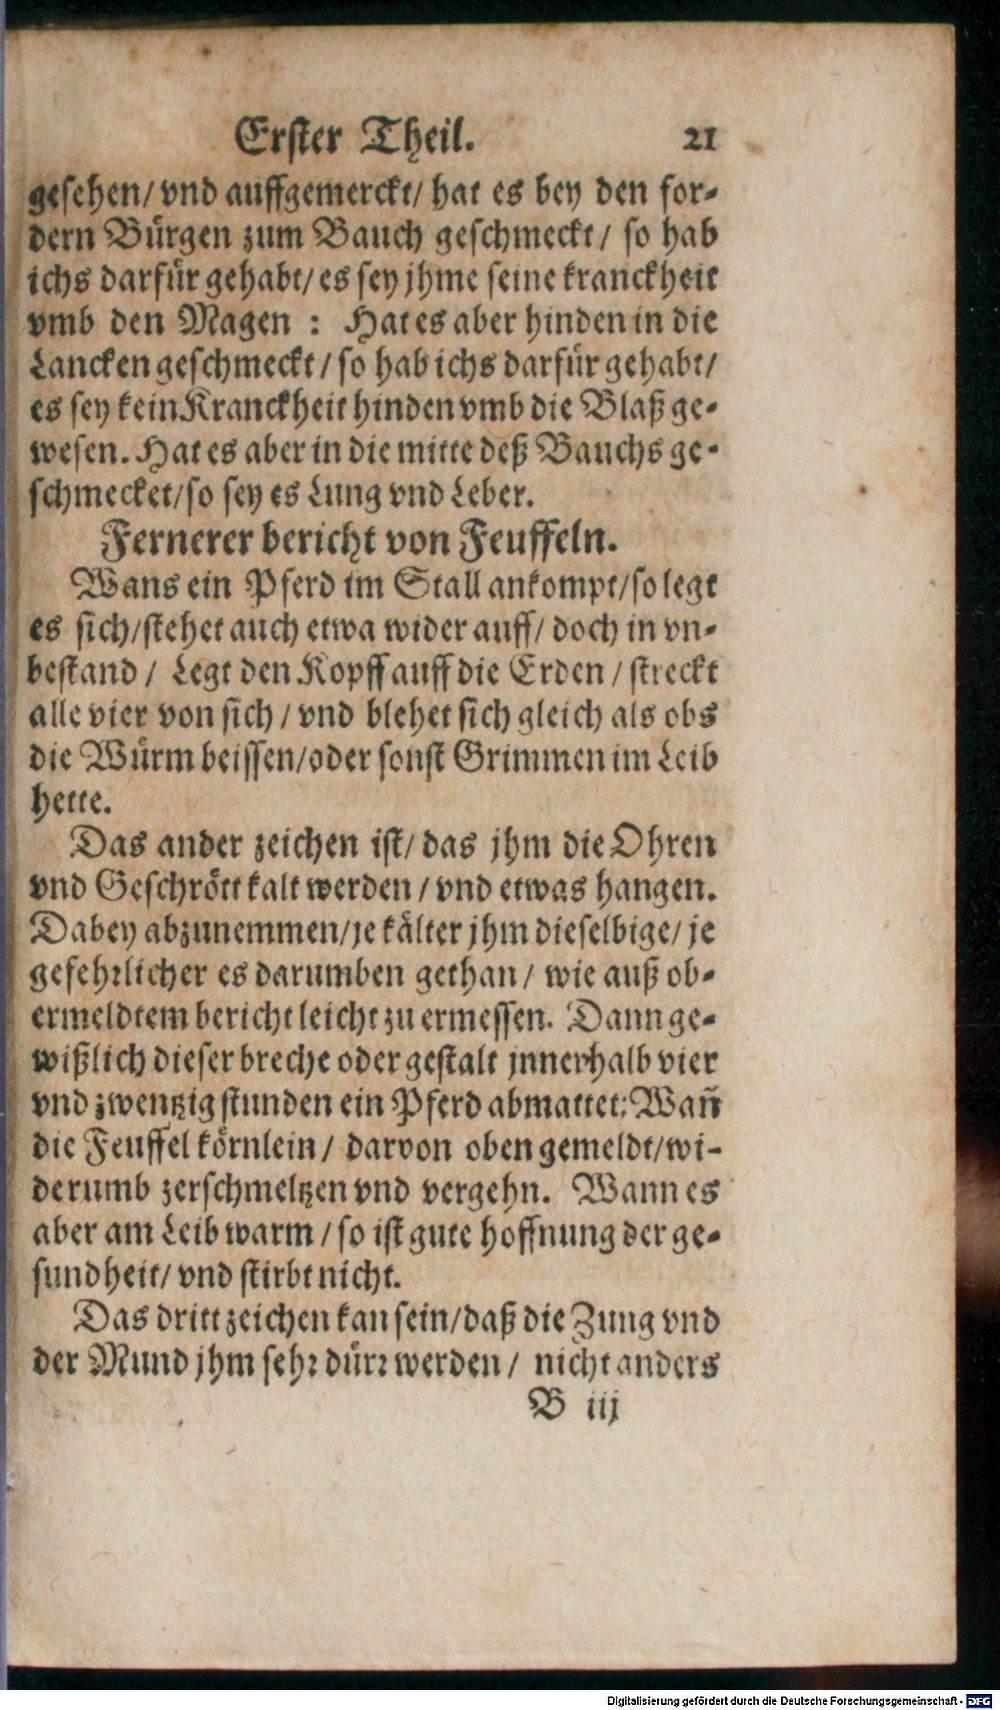 Erster Theil. 21
gesehen/ vnd auffgemerckt/ hat es bey den for-
dern Bürgen zum Bauch geschmeckt/ so hab
ichs darfür gehabt/ es sey jhme seine kranckheit
vmb den Magen : Hat es aber hinden in die
Lancken geschmeckt/ so hab ichs darfür gehabt/
es sey kein Kranckheit hinden vmb die Blaß ge-
wesen. Hat es aber in die mitte deß Bauchs ge-
schmecket/ so sey es Lung vnd Leber.
Fernerer bericht von Feuffeln.
Wans ein Pferd im Stall ankompt/ so legt
es sich/ stehet auch etwa wider auff/ doch in vn-
bestand/ Legt den Kopff auff die Erden/ streckt
alle vier von sich/ vnd blehet sich gleich als obs
die Würm beissen/ oder sonst Grimmen im Leib
hette.
Das ander zeichen ist/ das jhm die Ohren
vnd Geschrött kalt werden/ vnd etwas hangen.
Dabey abzunemmen/ je kälter jhm dieselbige/ je
gefehrlicher es darumben gethan/ wie auß ob-
ermeldtem bericht leicht zu ermessen. Dann ge-
wißlich dieser breche oder gestalt jnnerhalb vier
vnd zwentzig stunden ein Pferd abmattet: Wañ
die Feuffel körnlein/ darvon oben gemeldt/ wi-
derumb zerschmeltzen vnd vergehn. Wann es
aber am Leib warm/ so ist gute hoffnung der ge-
sundheit/ vnd stirbt nicht.
Das dritt zeichen kan sein/ daß die Zung vnd
der Mund jhm sehr dürr werden/ nicht anders
B iij
Digitalisierung gefördert durch die Deutsche Forschungsgemeinschaft - DFG